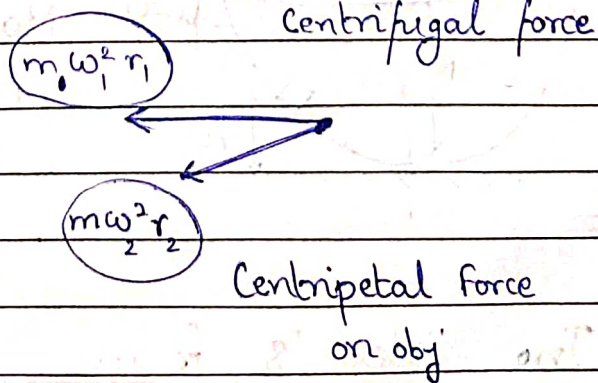 Centrifugal force
m ω₁² r₁
mω₂² r₂
Centripetal Force
on obj